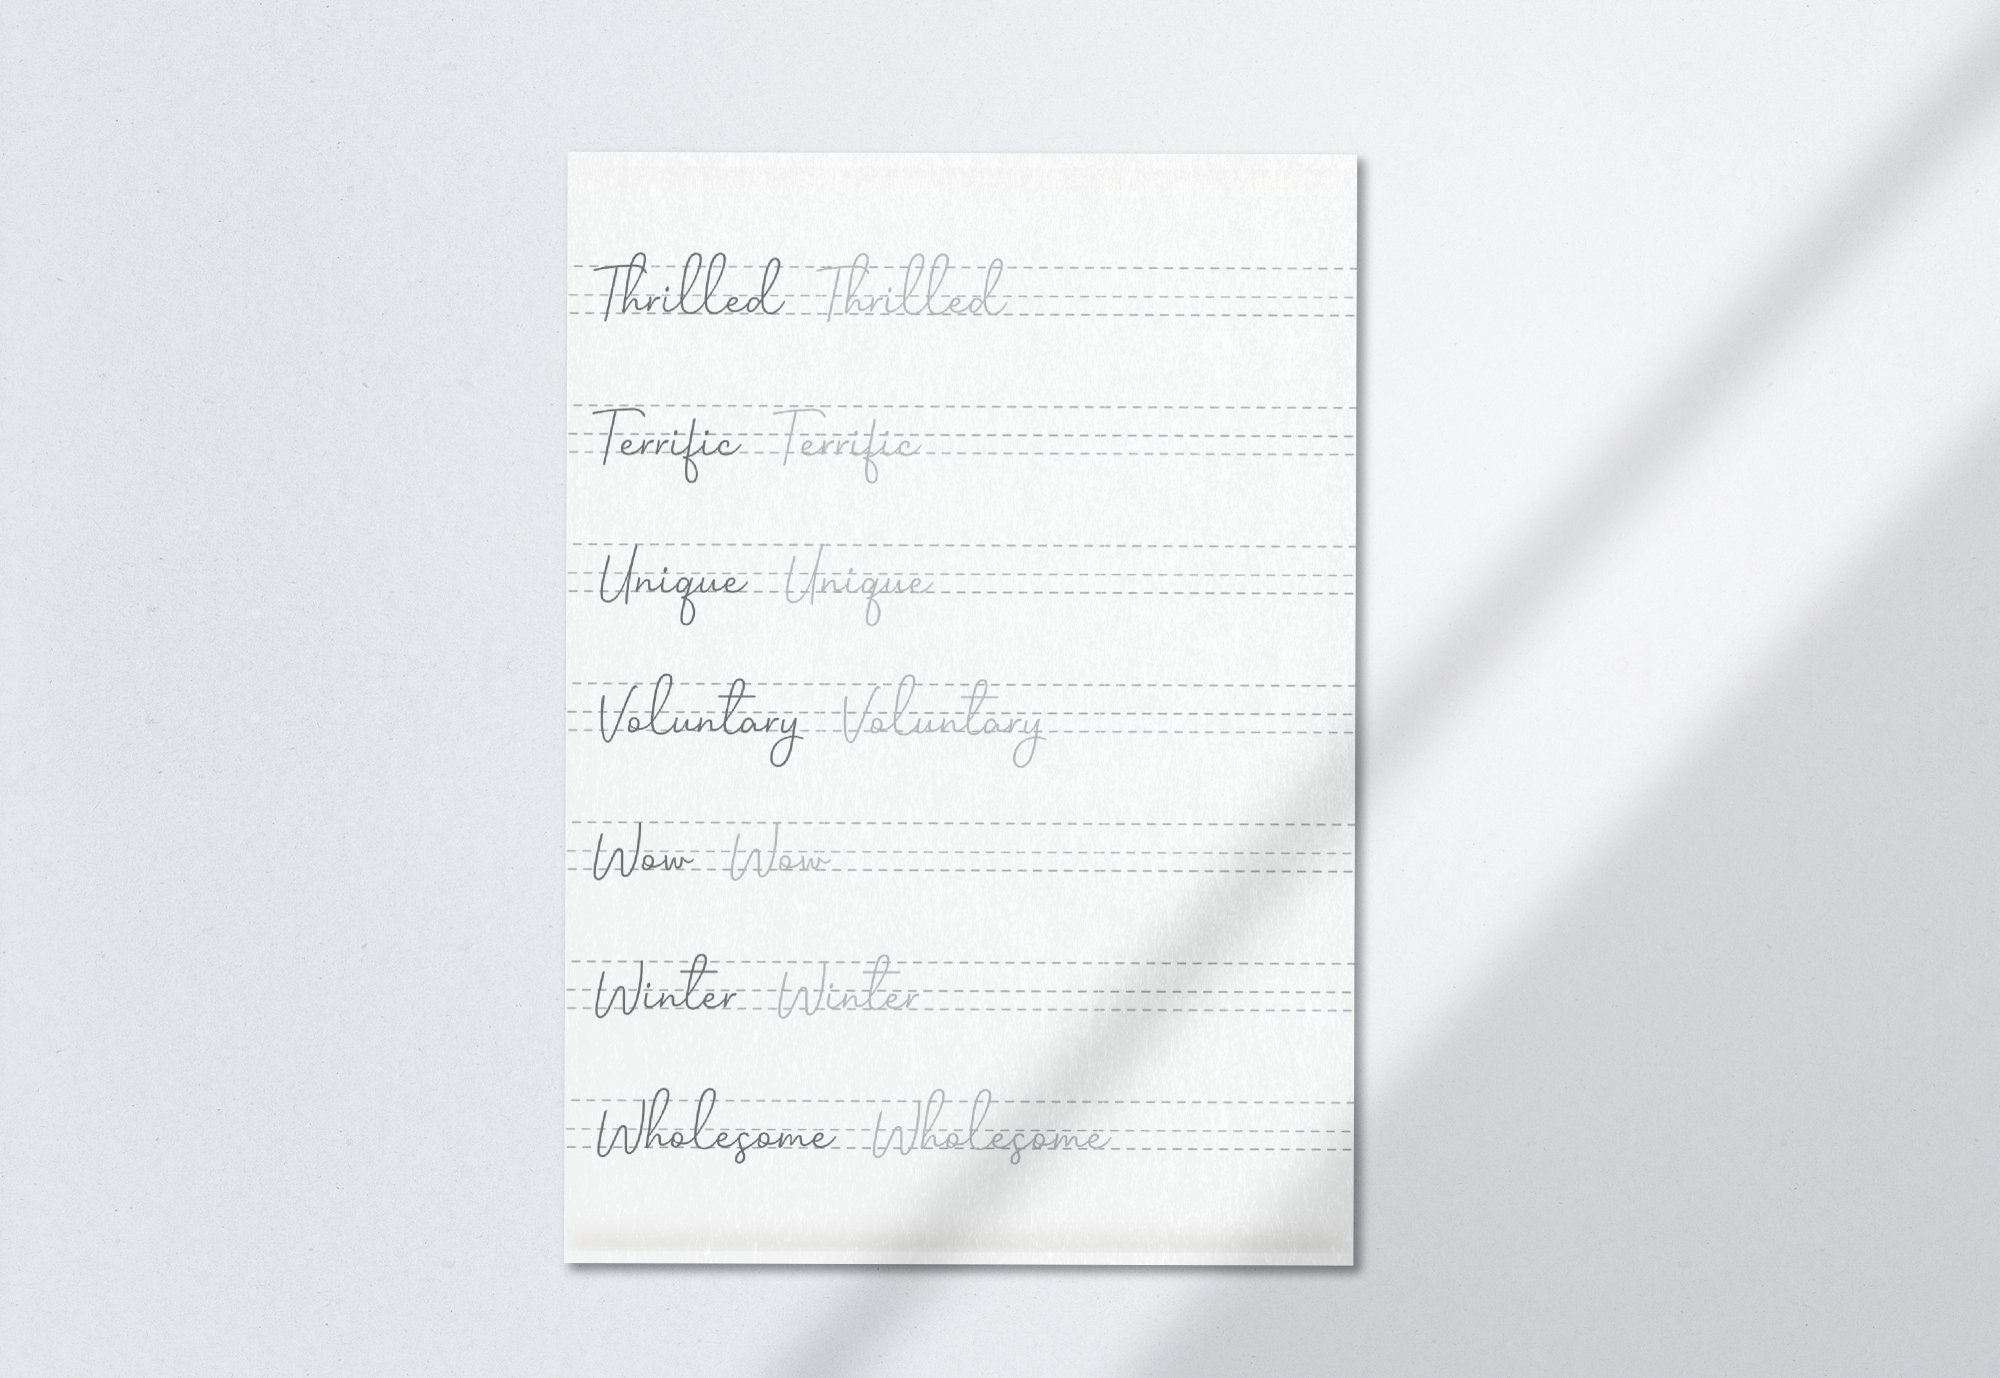 Thrilled Thrilled
Terrific Terrific
Unique Unique
Voluntary Voluntary
Wow Wow
Winter Winter
Wholesome Wholesome